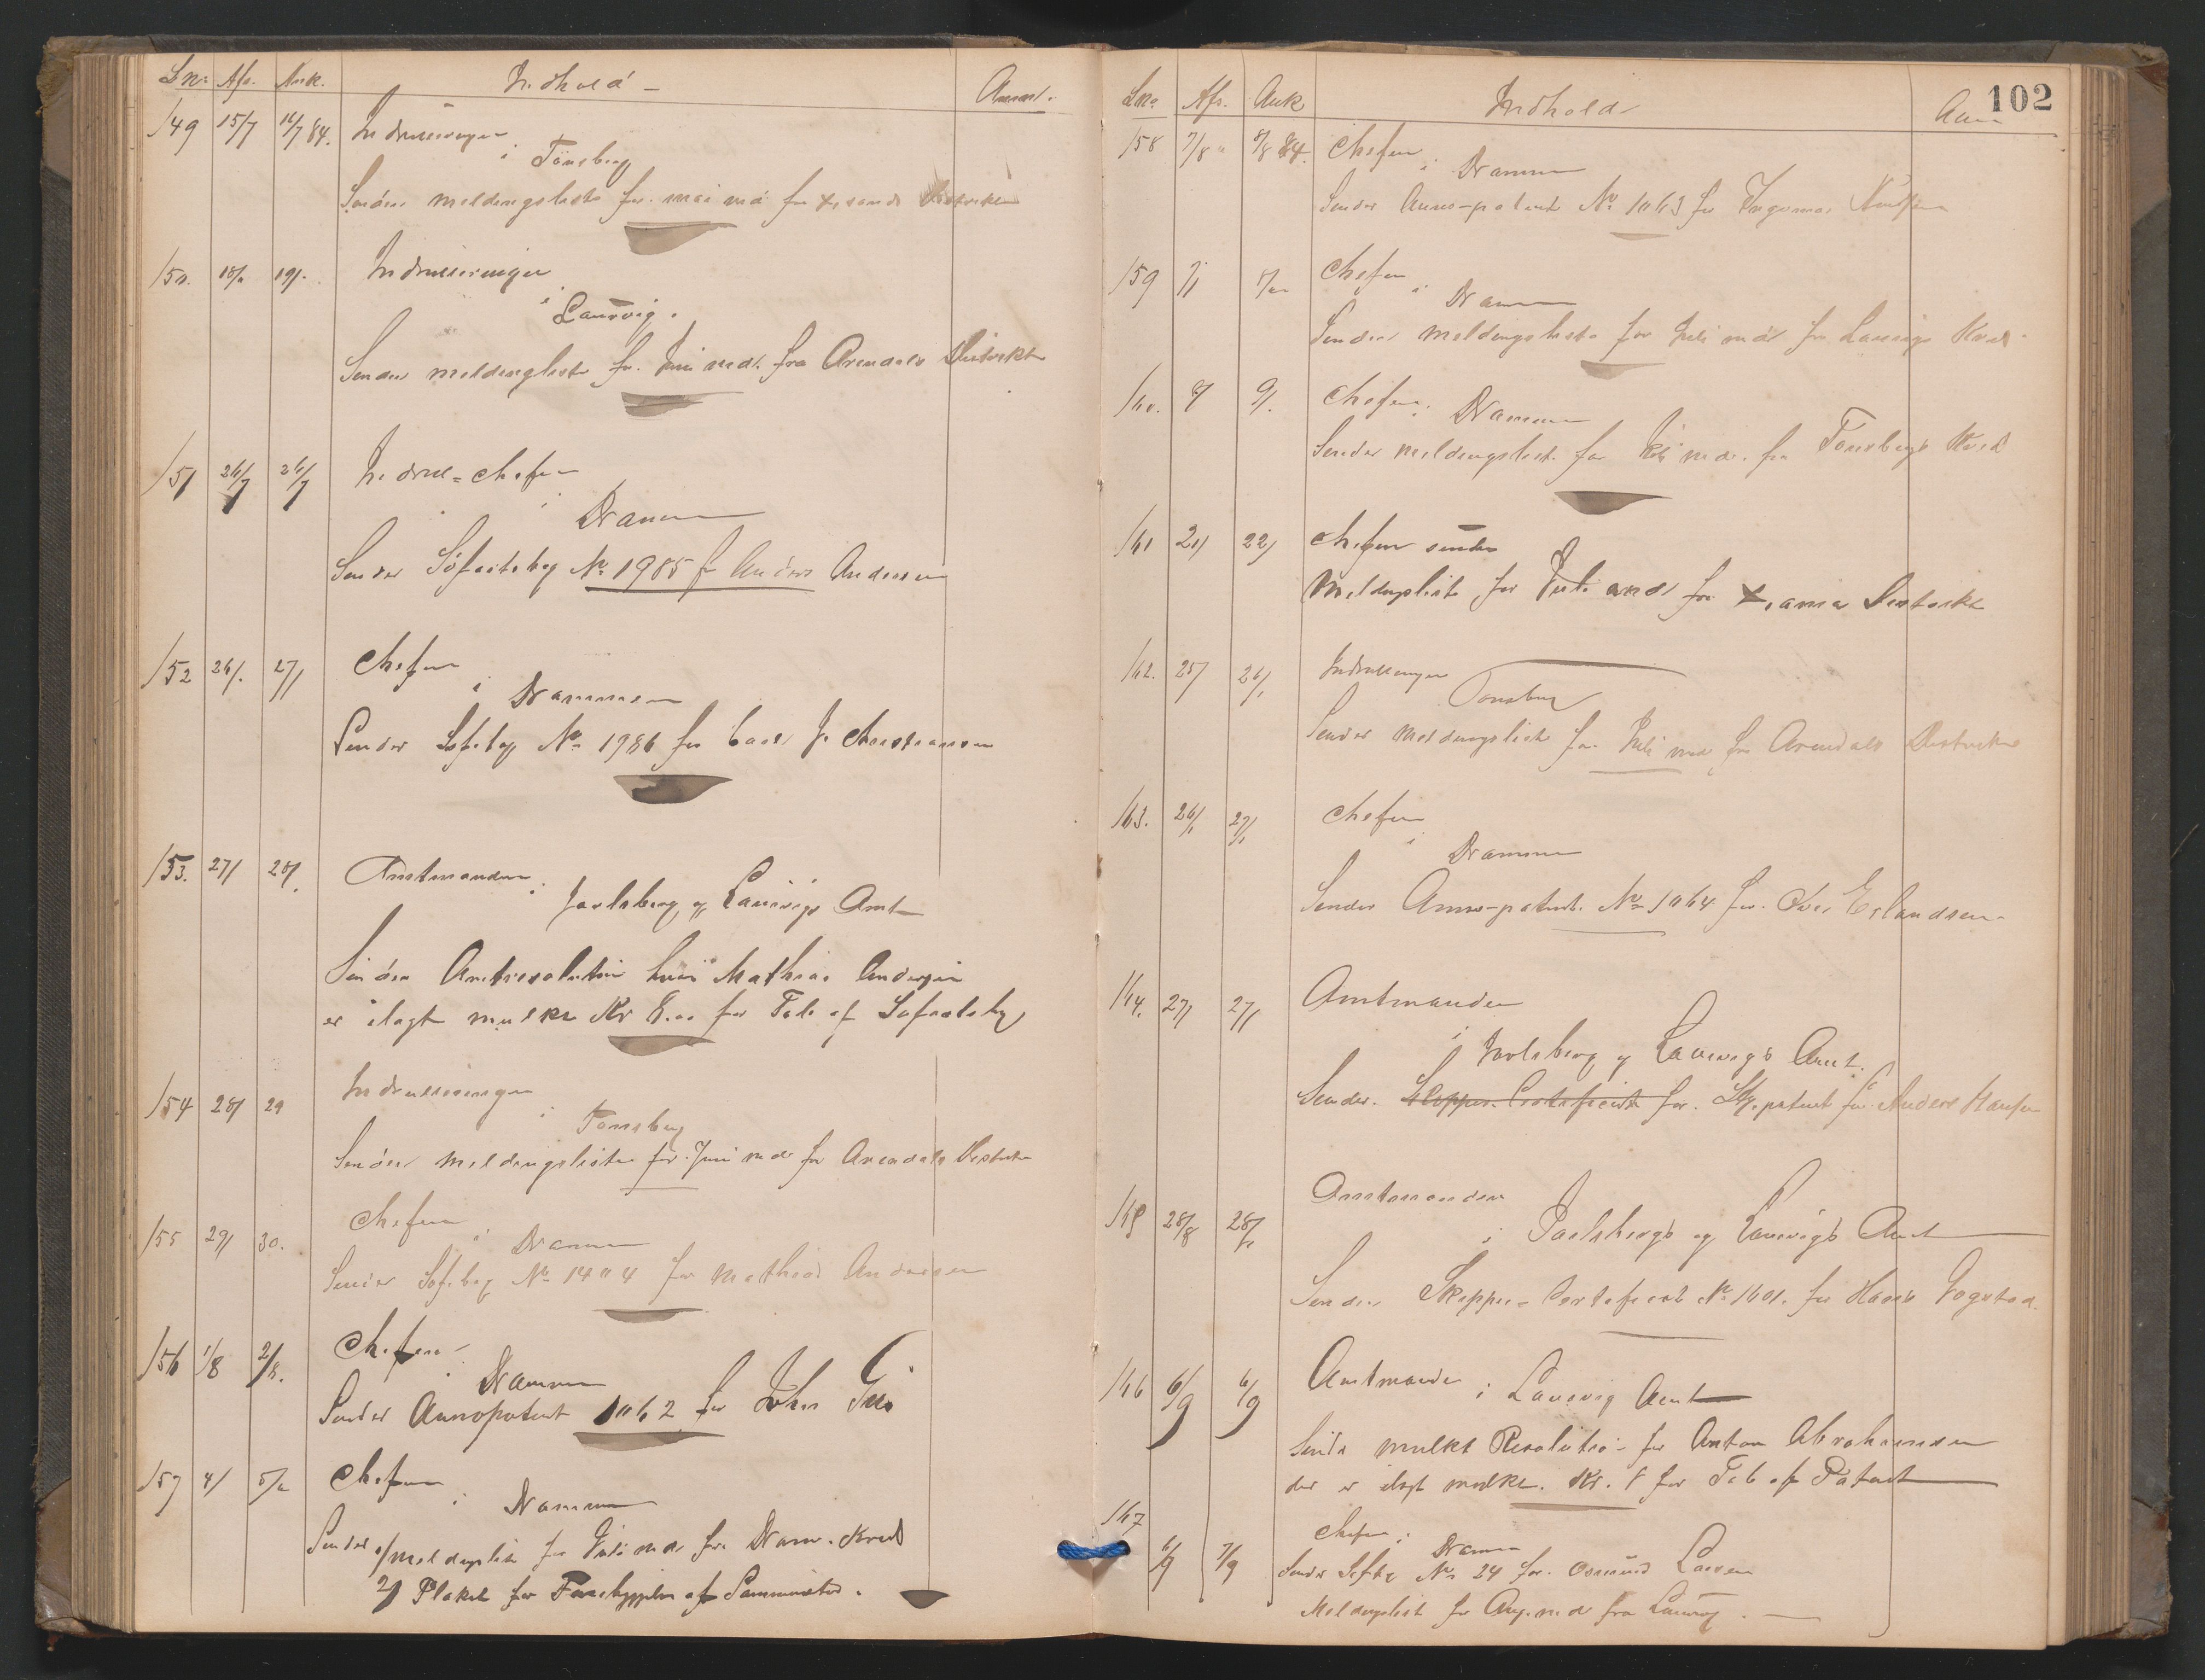 Lno Afs. Ank. Indhold Anm.
149 15/7 16/7 84. Indrulleringen
i Tönsberg
Sender meldingsliste for mai md. fra Xsands Distrikt
150. 18/ 19/. Indrulleringen
i Laurvig.
Sender meldingliste for Juni md. fra Arendals Distrikt
151 26/7 26/7 Indrul-chefen
i Drammen
Sender Söfartsbog No 1985 for Anders Andersen
152 26/. 27/ Chefen
i Drammen
Sender Sofbog No 1986 for Carl J. Christiansen
153. 27/ 28/. Amtmanden i
Jarlsberg og Laurvigs Amt
Sender Amtsresolution hvori Mathias Andersen
er ilagt mulkt Kr for Tab af Sofartsbog
154 28/ 29 Indrulleringen
i Tonsberg
Sender meldingsliste for Juni md. fra Arendals Distrikt
155 29/ 30. Chefen i
Drammen
Sender Sofbog No 1404 for Mathias Andersen
156 1/8 2/8. Chefen i
Drammen
Sender Annopatent 1062 for Johan
157 4/ 5/ Chefen
i Drammen
Sender 1/ meldingsliste for Juli md. fra Dram. Kreds
2/ Plakat for Forebyggelse af
102
Lno Afs. Ank Indhold Anm
158 7/8 8/8 84. Chefen i
Drammen
Sender Anno-patent No 1063 for Ingvmar Knudsen
159 7/ 8/ Chefen i
Drammen
Sender Meldingsliste for Juli md. fra Laurvigs Kreds
160. 8/ 9/. Chefen i
Drammen
Sender meldingslist. for Juli md. fra Tonsbergs Kreds
161 21/ 22/ Chefen sender
Meldingsliste for Juli md fra Xania Distrikt
162. 25/ 26/ Indrulleringen
Tonsberg
Sender Meldingsliste for Juli md fra Arendals Distrikt
163. 26/ 27/ Chefen
i Drammen
Sender Anno-patent No 1064 for Erlandsen
164. 27/ 27/ Amtmanden
i Jarlsberg og Laurvigs Amt.
Sender Skipper-Certificat for. patent for Anders Hansen
165 28/8 28/ Amtmanden
i Jarlsbergs og Laurvigs Amt
Sender Skipper-Certificat No 1601. for Hans
166 6/9 6/9 Amtmanden i Laurvig Amt
Sender mulkt Resolution for Anton Abrahamsen
der er ilagt mulkt. Kr. 8 for Tab af Patent
167 Chefen i
Drammen
6/9 7/9 Sender Sofbog No 24 for. Larsen
Meldingslist for Aug. md fra Laurvig.